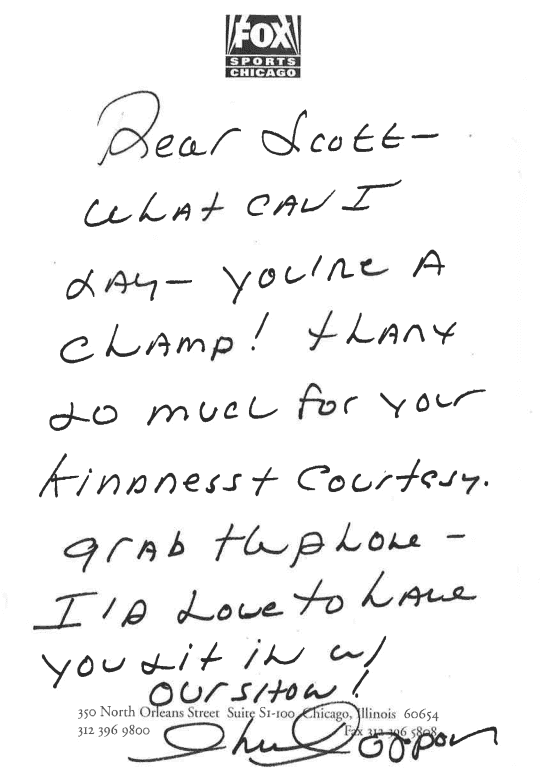 FOX
SPORTS
CHICAGO
Dear Scott—
What can I
say— you're a
champ! Thank
so much for your
kindness + courtesy.
Grab the phone —
I'd love to have
you sit in w/
our show!
350 North Orleans Street Suite S1-100 Chicago, Illinois 60654
312 396 9800 Fax 312 396 5808